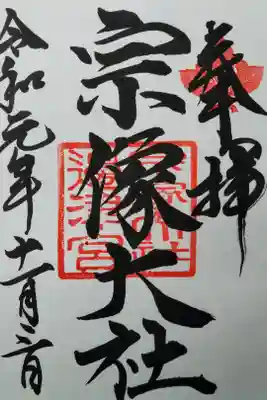 奉拝
宗像大社
令和元年十一月二日